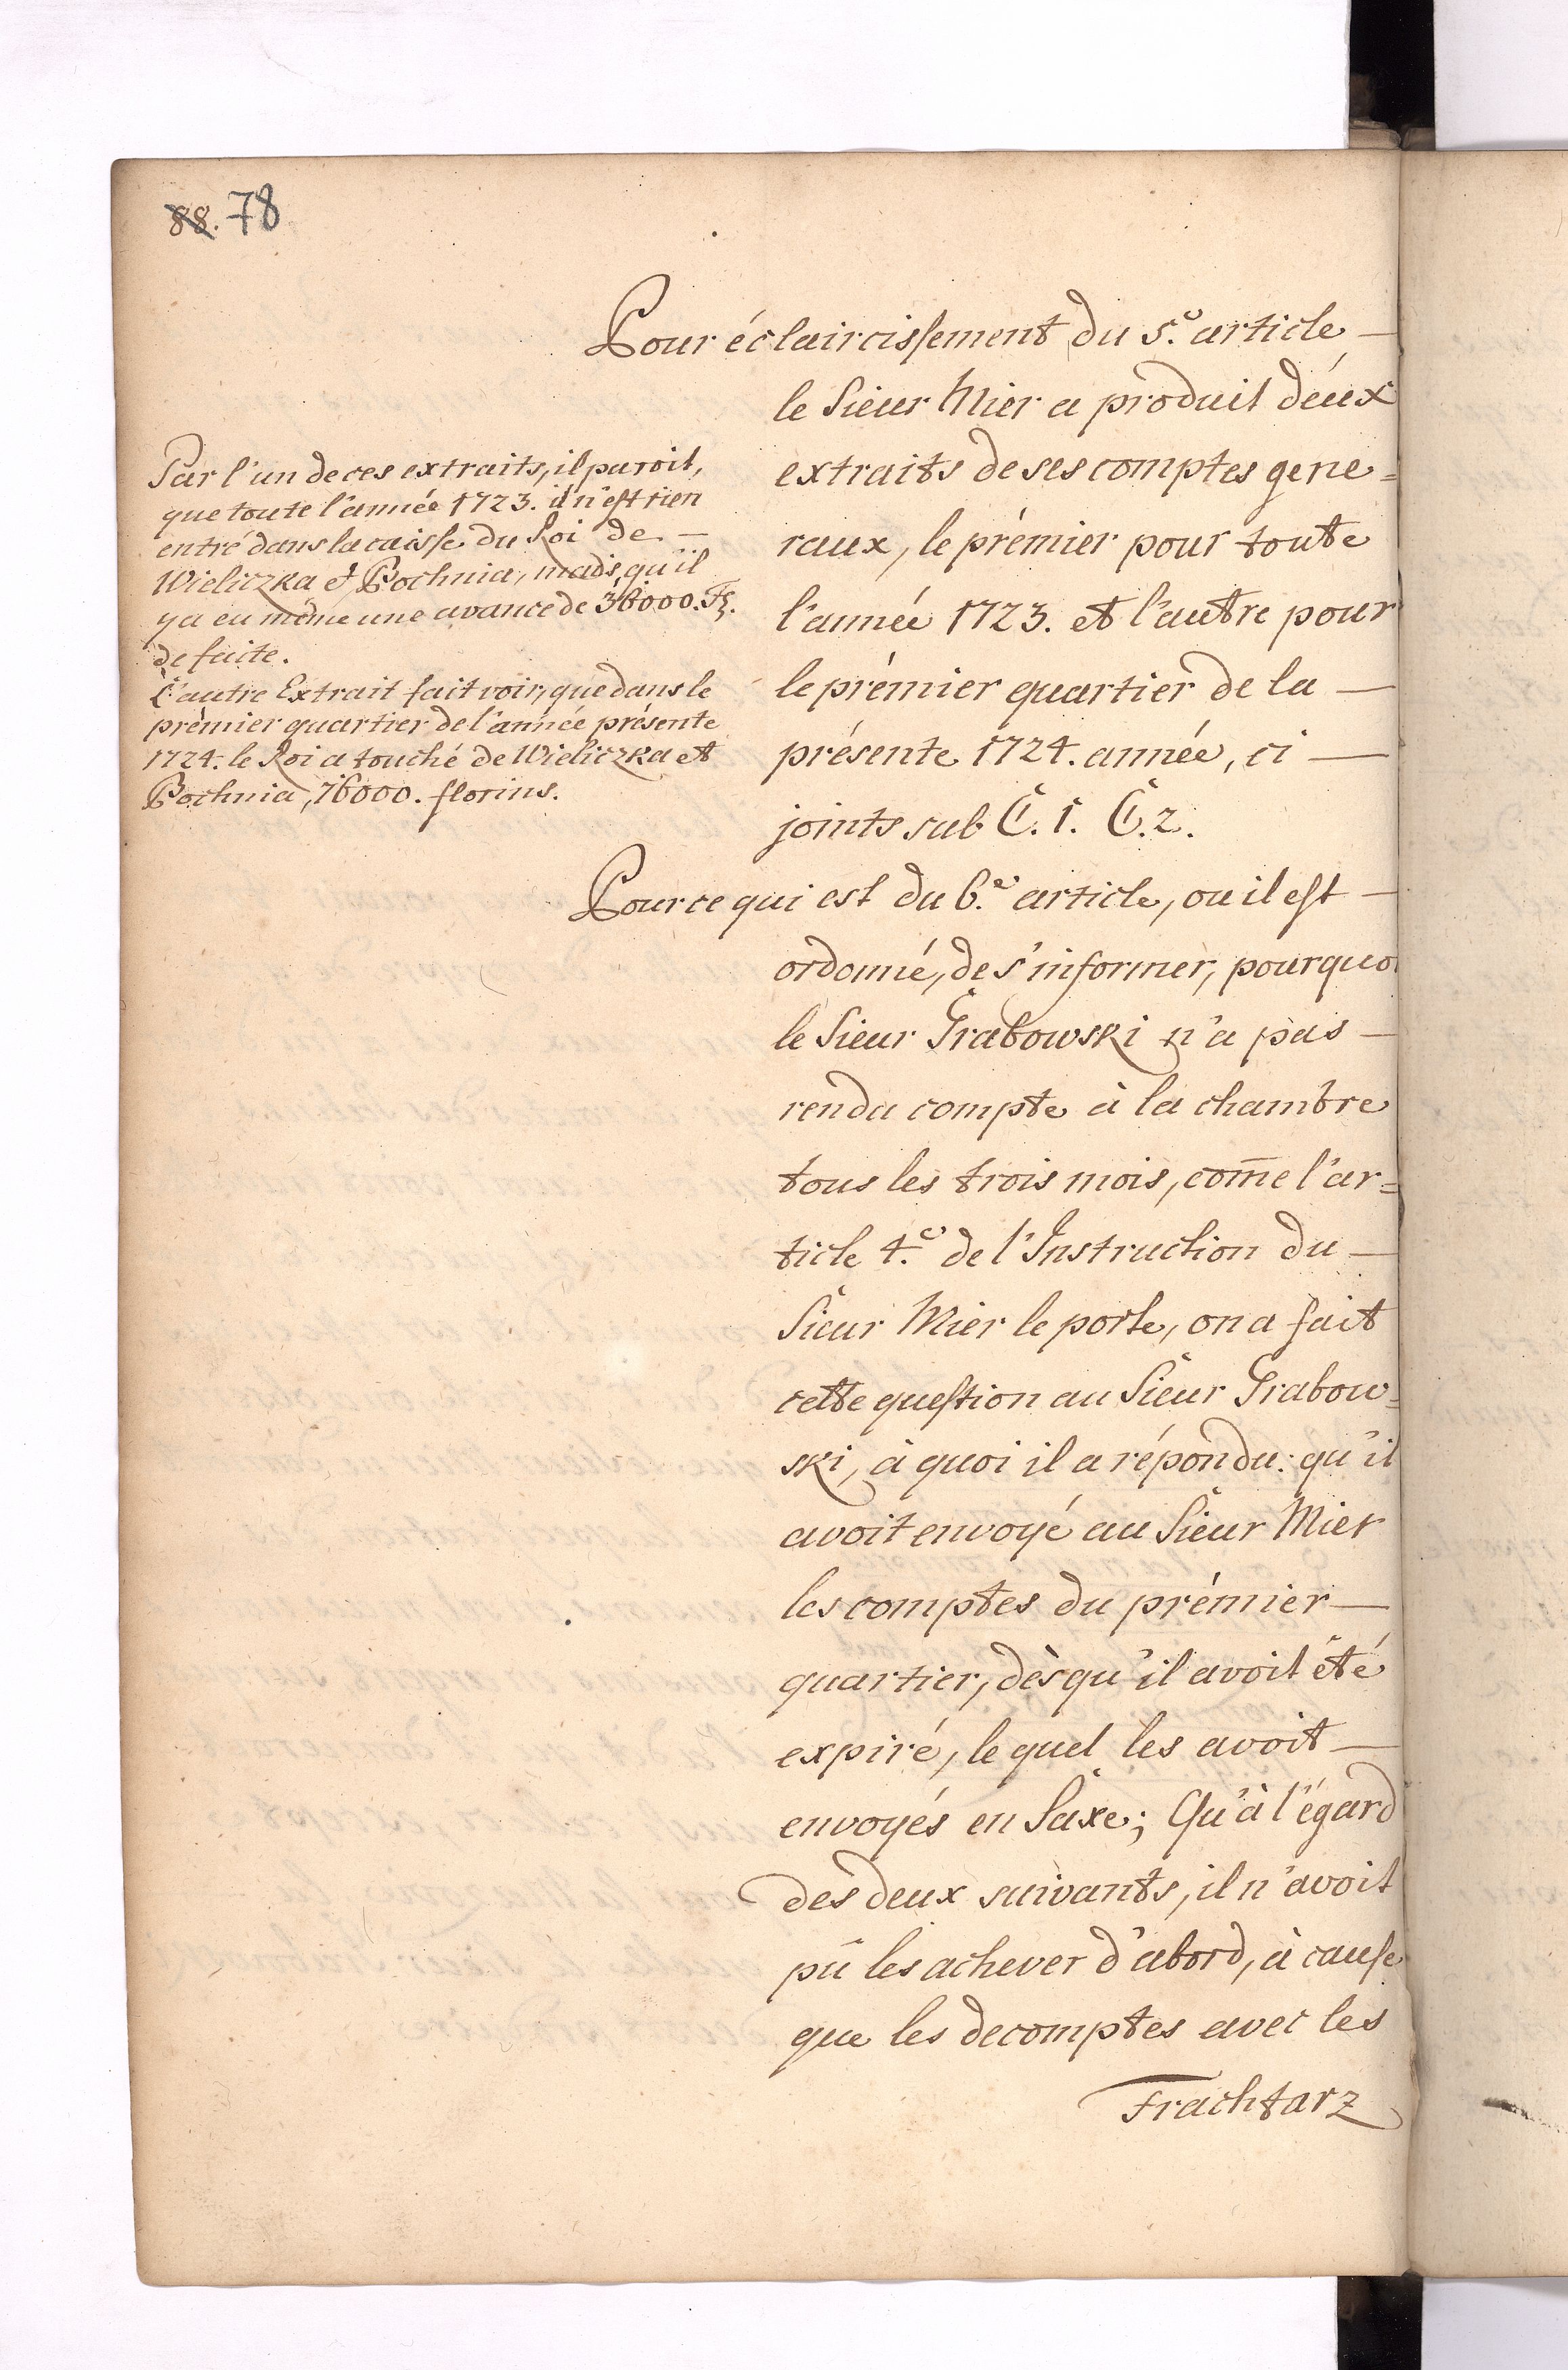 88. 78
Pour éclaircissement du 5.e article —
le Sieur Mier a produit deux
extraits de ses comptes gene=
raux, le prémier pour toute
l'année 1723. et l'autre pour
le prémier quartier de la —
présente 1724. année, ci —
joints sub C. 1. C. 2.
Par l'un de ces extraits, il paroit,
que toute l'année 1723. il n'est rien
entré dans la caisse du Roi de —
Wieliczka et Bochnia, mais, qu'il
y a eu même une avance de 36000. Fl.
de faite.
L'autre Extrait fait voir, que dans le
prémier quartier de l'année présente
1724. le Roi a touché de Wieliczka et
Bochnia, 76000. florins.
Pour ce qui est du 6.e article, ou il est —
ordonné, de s'informer, pourquoi
le Sieur Grabowski n'a pas —
rendu compte à la chambre
tous les trois mois, com̅e l'ar=
ticle 4.e de l'Instruction du —
Sieur Mier le porte, on a fait
cette question au Sieur Grabow=
ski, à quoi il a répondu: qu'il
avoit envoyé au Sieur Mier
les comptes du prémier —
quartier, dès qu'il avoit été
expiré, le quel les avoit —
envoyés en Saxe; Qu'à l'égard
des deux suivants, il n'avoit
pû les achever d'abord, à cause
que les decomptes avec les
Frachtarz